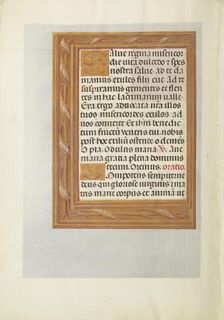 Salue regina misericor
die uita dulcedo et spes
nostra salue ad te cla
mamus exules filii eue ad te
suspiramus gementes et flen
tes in hac lacrimarum ualle
Eya ergo aduocata nostra illos
tuos misericordes oculos ad
nos conuerte Et ihm benedic
tum fructum uentris tui nobis
post hoc exilium ostende o clemens
O pia O dulcis maria V. Aue
maria gratia plena dominus
tecum. Oremus. oratio.
Omnipotens sempiterne
deus qui gloriose uirginis ma
rie corpus et animā ut